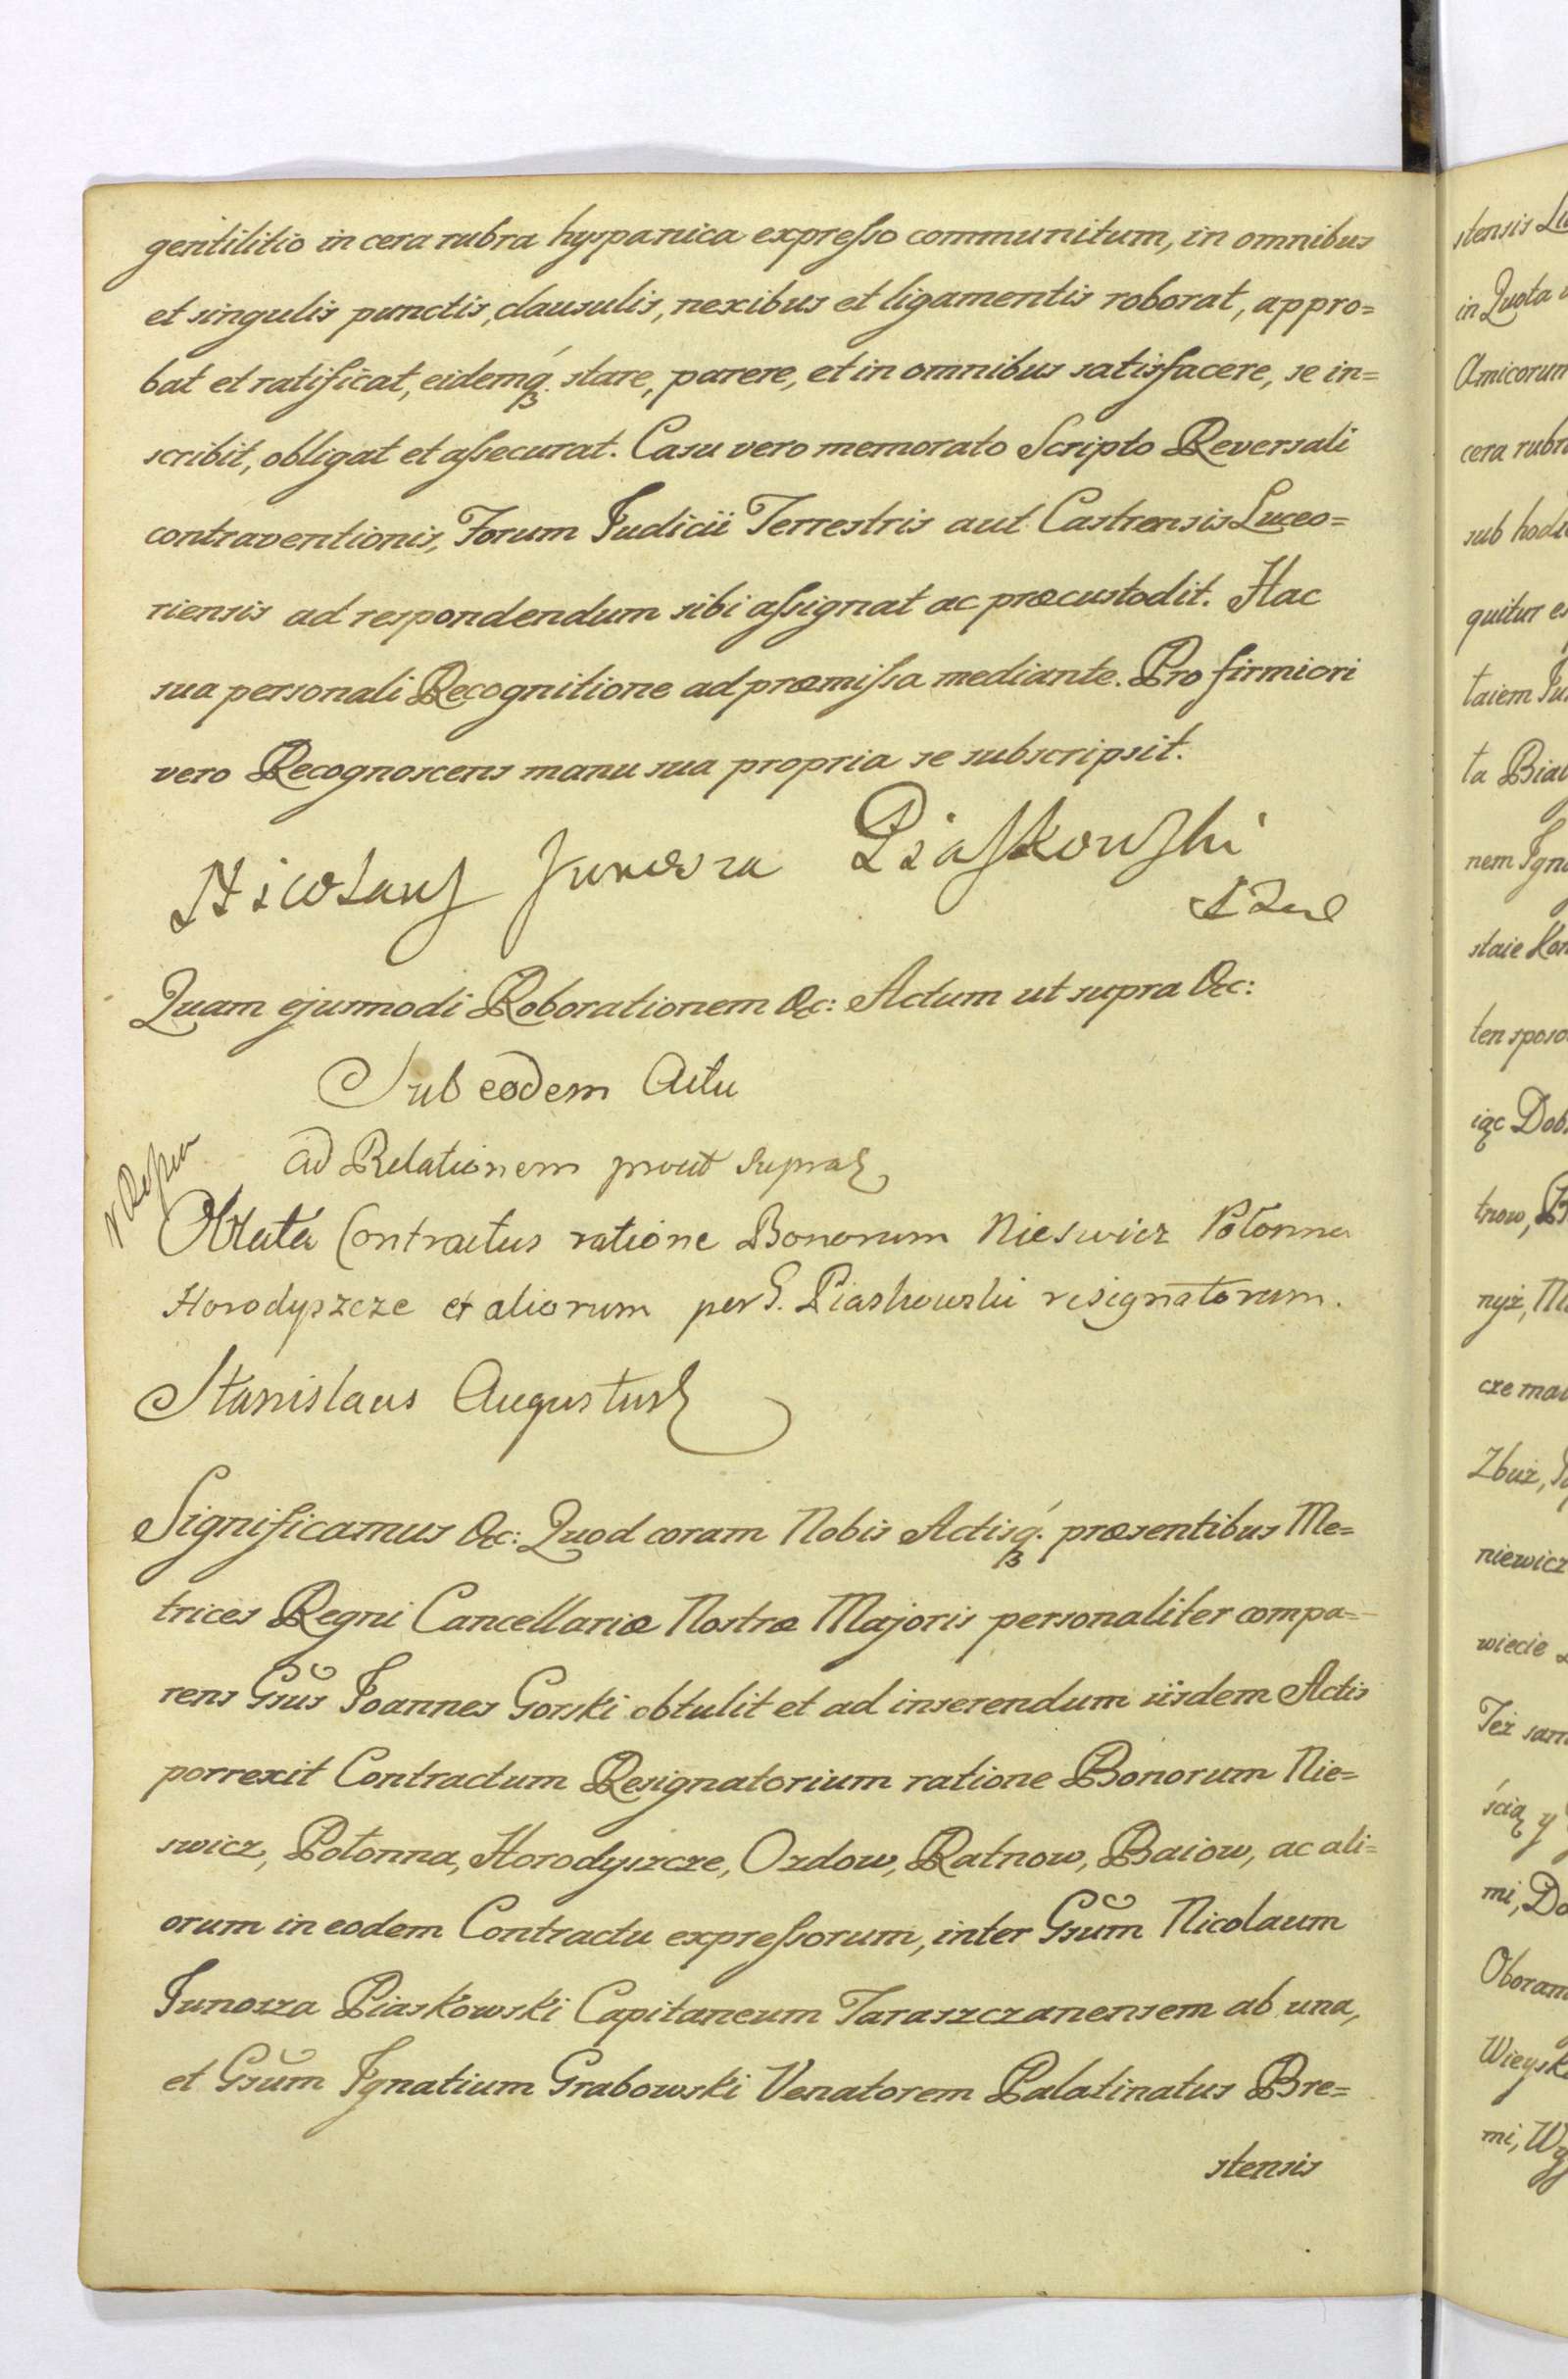 gentilitio in cera rubra hyspanica expresso communitum, in omnibus
et singulis punctis, clausulis, nexibus et ligamentis roborat, appro=
bat et ratificat, eidemq́ꝫ stare, parere, et in omnibus satisfacere, se in=
scribit, obligat et assecurat. Casu vero memorato Scripto Reversali
contraventionis, Forum Judicii Terrestris aut Castrensis Luceo=
riensis ad respondendum sibi assignat ac præcustodit. Hac
sua personali Recognitione ad præmissa mediante. Pro firmiori
vero Recognoscens manu sua propria se subscripsit.
Nicolaus Junosza Piaskowski
Quam ejusmodi Roborationem &c: Actum ut supra &c:
Sub eodem Actu
ad Relationem prout supra
Oblata Contractus ratione Bonorum Nieswicz Połonna
Horodyszcze et aliorum per G. Piaskowski resignatorum.
Stanislaus Augustus
Significamus &c: Quod coram Nobis Actisq́ꝫ. præsentibus Me=
trices Regni Cancellariæ Nostræ Majoris personaliter compa=
rens Gsus Joannes Gorski obtulit et ad inserendum iisdem Actis
porrexit Contractum Resignatorium ratione Bonorum Nie=
swicz, Połonna, Horodyszcze, Ozdow, Ratnow, Baiow, ac ali=
orum in eodem Contractu expressorum, inter Gsum Nicolaum
Junosza Piaskowski Capitaneum Taraszczanensem ab una,
et Gsum Ignatium Grabowski Venatorem Palatinatus Bre=
stensis
stensis
in Quota
Amicorum
cera rubr
sub hodi
quitur
taiem
ta
nem
staie
ten sposo
iąc Dob
trow,
nyż,
cze
Zbuż,
niewicz
wiecie
Też
ścią y
mi,
Oboram
Wieysk
mi,